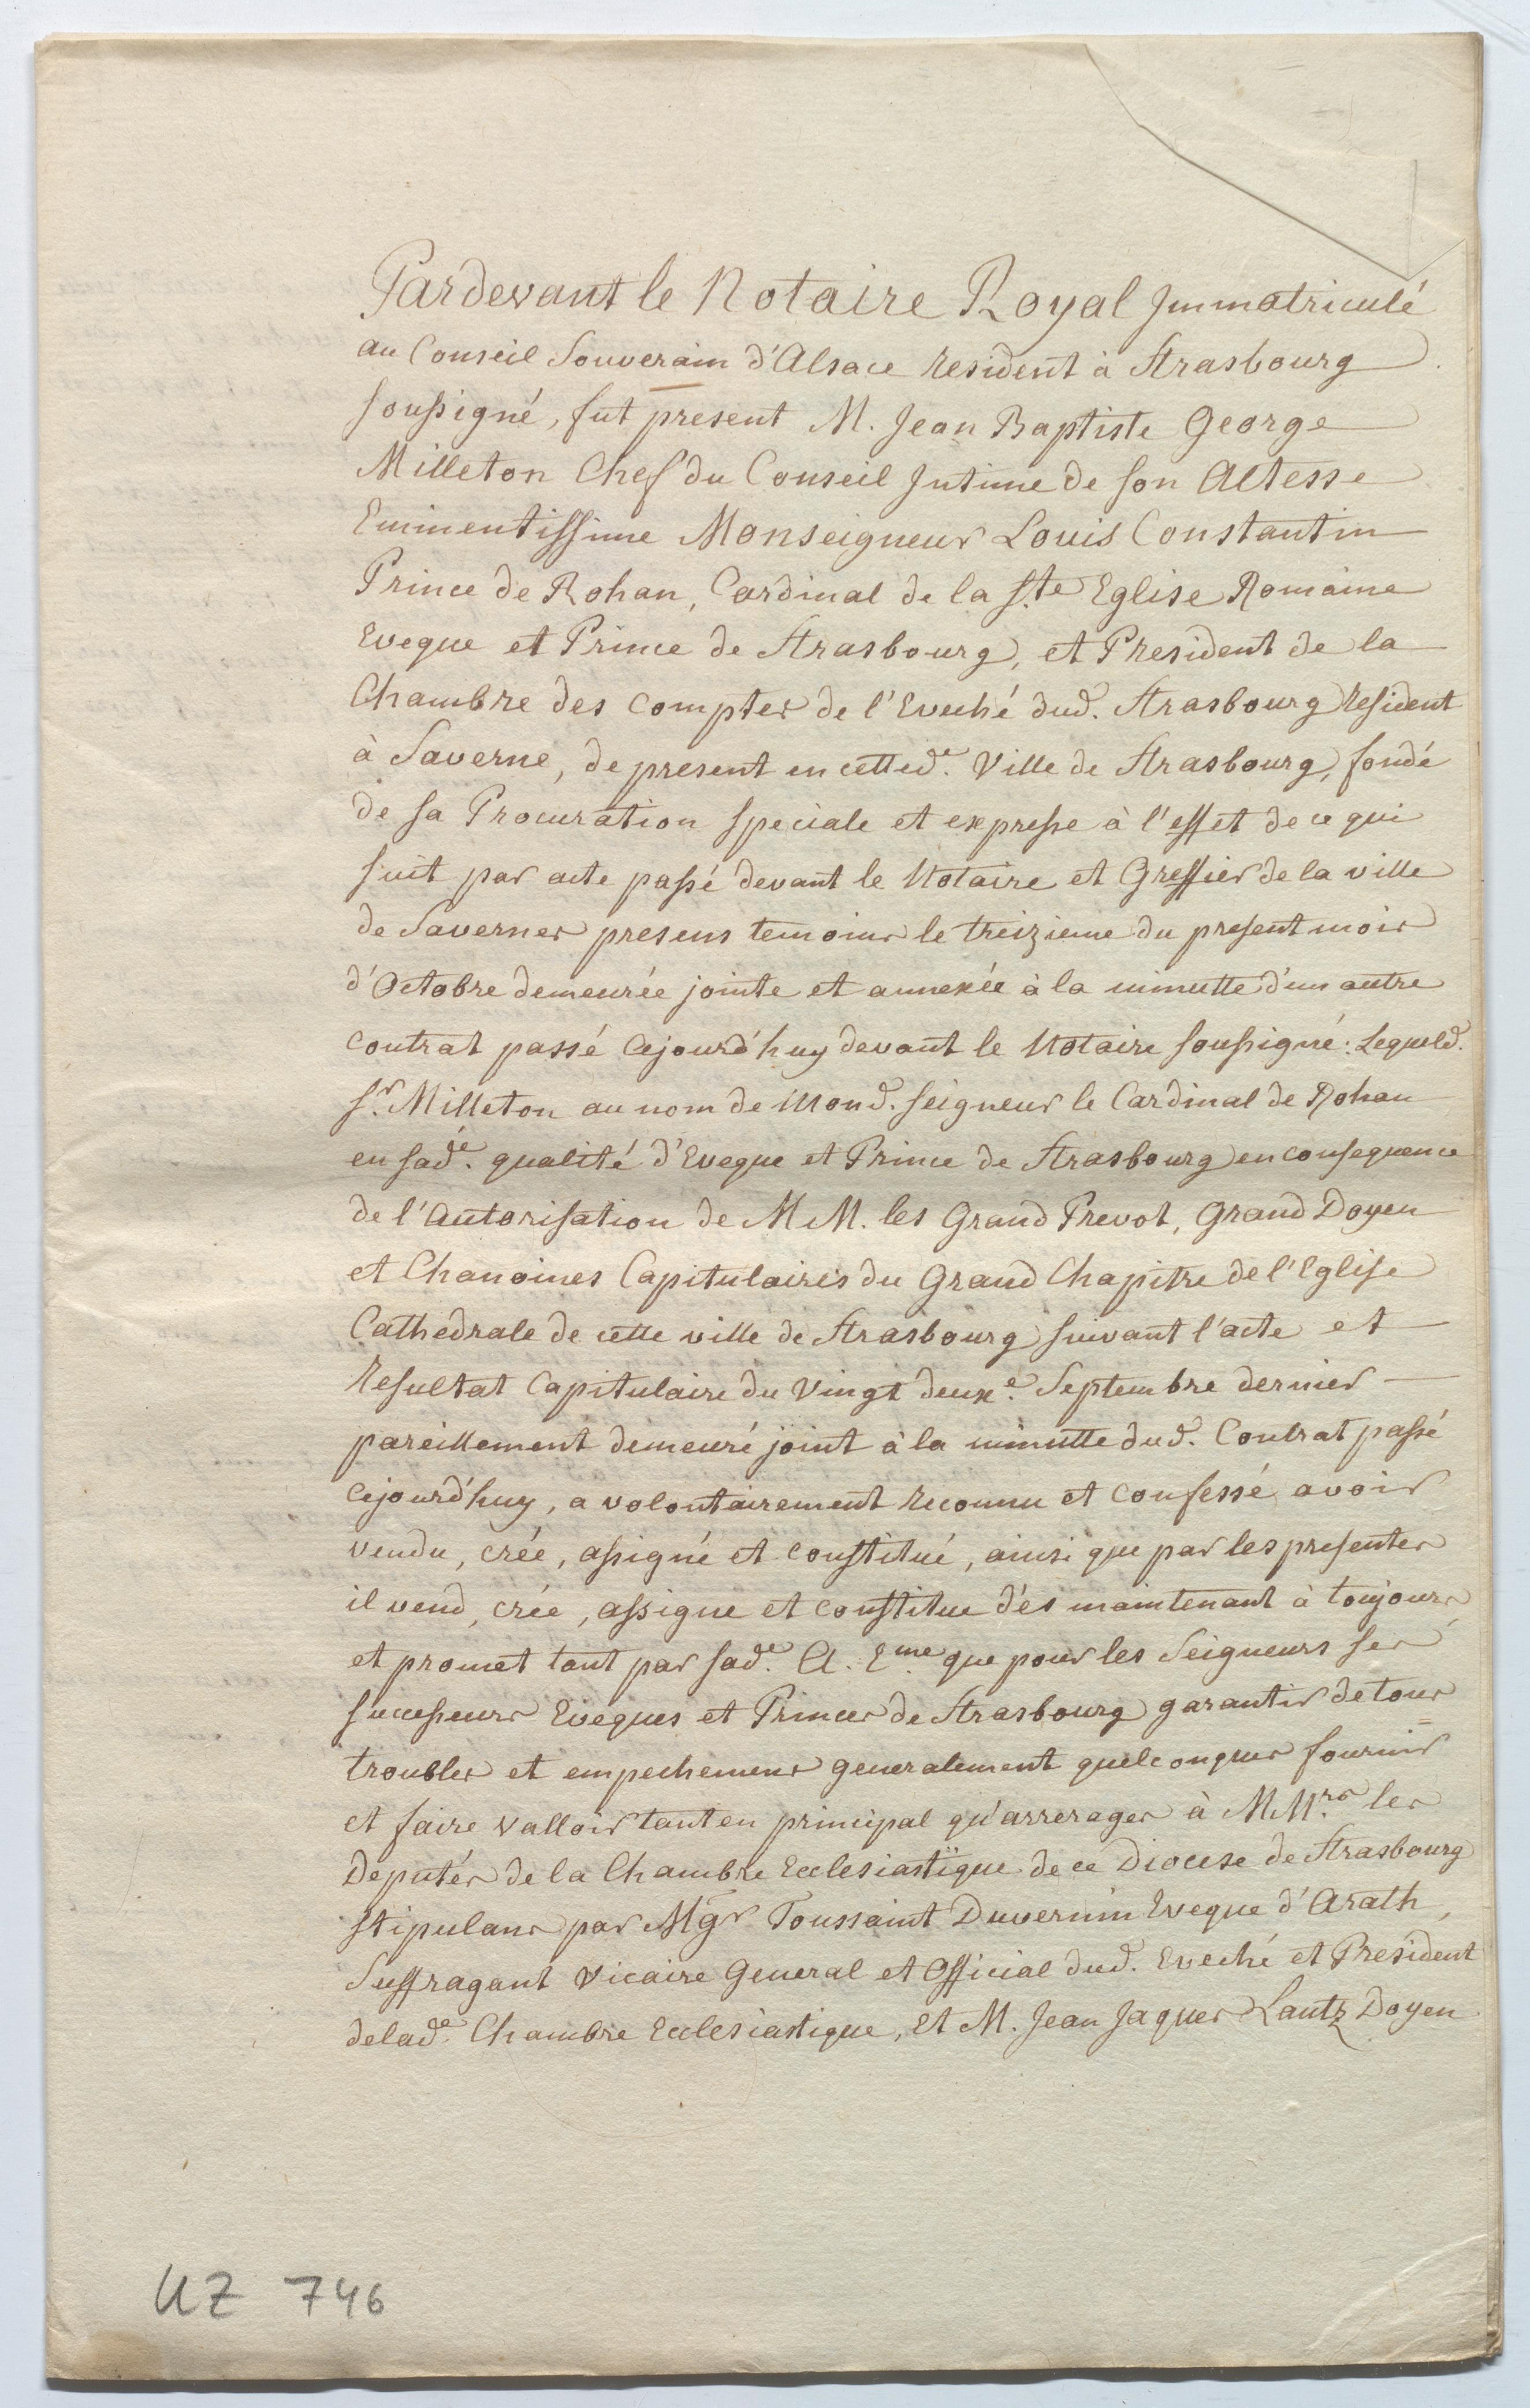 Pardevant le Notaire Royal Immatriculé
au Conseil Souverain d'Alsace resident à Strasbourg
soussigné, fut present M. Jean Baptiste George
Milleton Chef du Conseil Intime de son Altesse
Eminentissime Monseigneur Louis Constantin
Prince de Rohan, Cardinal de la Ste Eglise Romaine
Eveque et Prince de Strasbourg, et President de la
Chambre des Comptes de l'Eveché dud. Strasbourg resident
à Saverne, de present en cetted.e Ville de Strasbourg, fondé
de sa Procuration speciale et expresse à l'effet de ce qui
suit par acte passé devant le Notaire et Greffier de la ville
de Saverne presens temoins le treizieme du present mois
d'Octobre demeurée jointe et annexée à la minutte d'un autre
contrat passé cejourd'huy devant le Notaire soussigné: Lequeld.
Sr. Milleton au nom de mond. seigneur le Cardinal de Rohan
en sad.e qualité d'Eveque et Prince de Strasbourg en consequence
de l'Autorisation de M M. les Grand Prevot, Grand Doyen
et Chanoines Capitulaires du Grand Chapitre de l'Eglise
Cathedrale de cette ville de Strasbourg suivant l'acte et
Resultat Capitulaire du Vingt deuxe. Septembre dernier
pareillement demeuré joint à la minutte dud. Contrat passé
cejourd'huy, a volontairement reconnu et confessé avoir
vendu, crée, assigné et constitué, ainsi que par les presentes
il vend, crée, assigne et constitue dès maintenant à toujours
et promet tant par sad.e A. Eme que pour les Seigneurs ses
successeurs Eveques et Princes de Strasbourg garantir de tous
troubles et empechemens generalement quelconques fournir
et faire valloir tant en principal qu'arrerages à M Mrs. les
Deputés de la Chambre Ecclesiastique de ce Diocese de Strasbourg
stipulans par Mgr Toussaint Duvernin Eveque d'Arath,
Suffragant Vicaire General et Official dud. Eveché et President
delad.e Chambre Ecclesiastique, et M. Jean Jaques Lantz Doyen
UZ 746